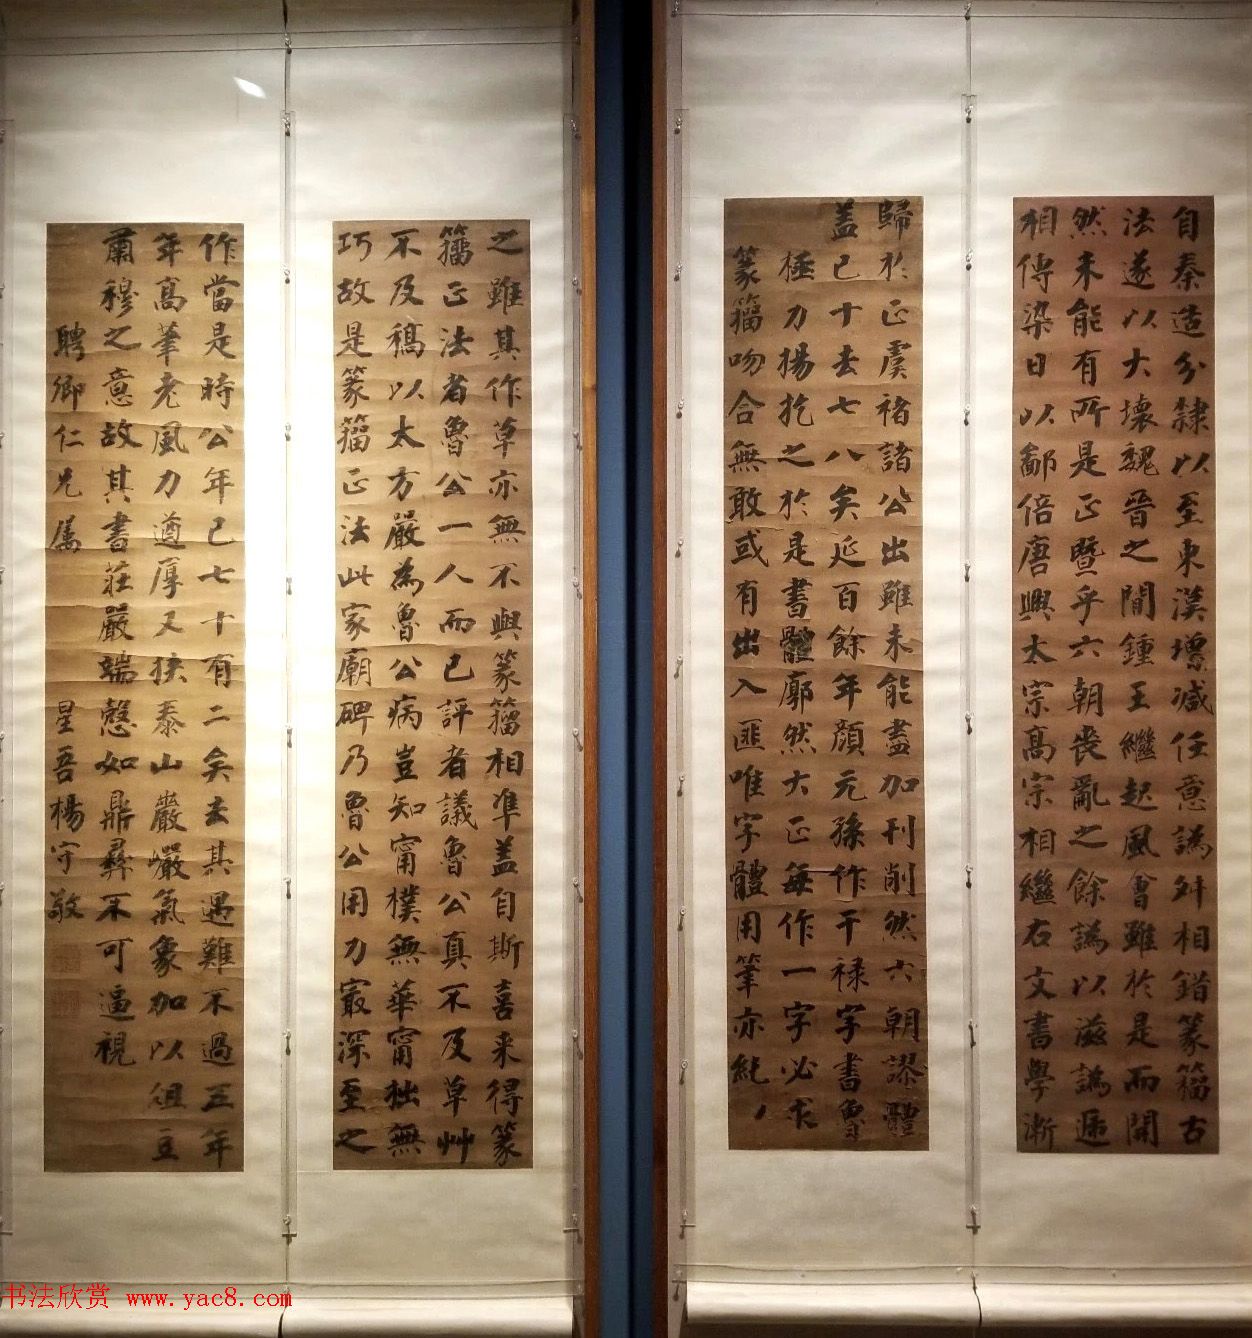 自秦造分隸以至東漢增減任意譌舛相錯篆籀古
法遂以大壞魏晉之間鍾王繼起風會雖於是而開
然未能有所是正暨乎六朝喪亂之餘譌以滋譌遞
相傳染日以鄙倍唐興太宗高宗相繼右文書學漸
歸於正虞褚諸公出雖未能盡加刊削然六朝謬體
蓋已十去七八矣延百餘年顏元孫作干祿字書魯
極力揚扢之於是書體廓然大正每作一字必求
篆籀吻合無敢或有出入匪唯字體用筆亦純
之雖其作草亦無不與篆籀相準蓋自斯喜來得篆
籀正法者魯公一人而已評者議魯公真不及草艸
不及稿以太方嚴為魯公病豈知甯樸無華甯拙無
巧故是篆籀正法此家廟碑乃魯公用力寂深至之
作當是時公年已七十有二矣去其遇難不過五年
年高筆老風力遒厚又挾泰山巖巖氣象加以俎豆
肅穆之意故其書莊嚴端愨如鼎彝不可逼視
聘卿仁兄屬 星吾楊守敬
书法欣赏 www.yac8.com